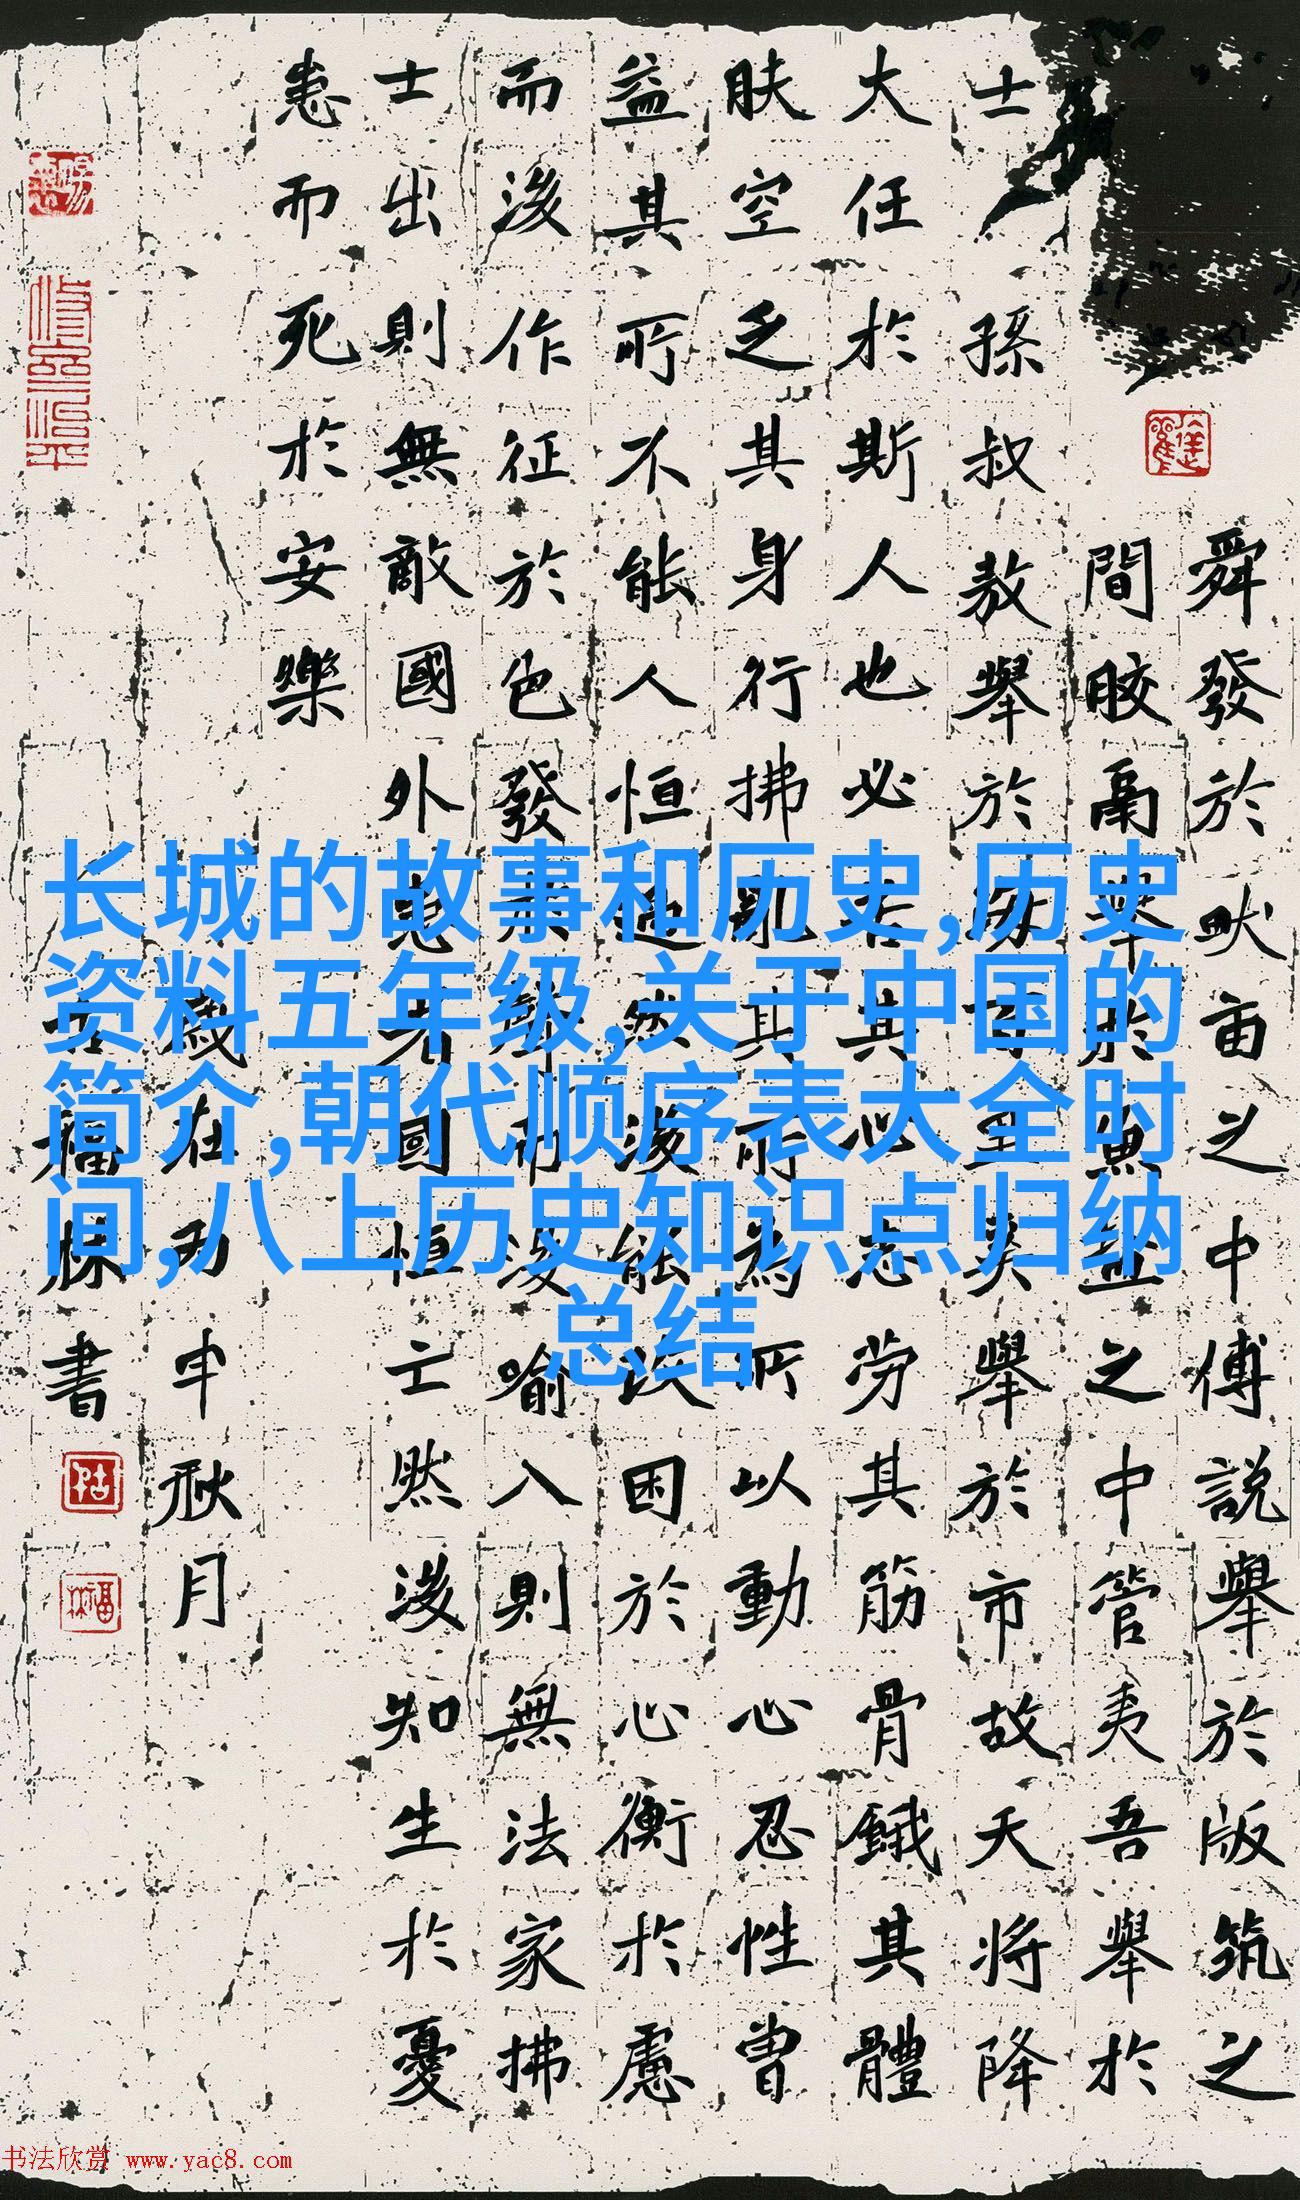 舜發於畎亩之中傅説舉於版筑之
間膠鬲舉於魚盐之中管夷吾舉於
士孫叔敖舉於海百里奚舉於市故天將降
大任於斯人也必苦其心志劳其筋骨餓其體
肤空乏其身行拂亂其所為所以動心忍性曾
益其所不能人恒過然後能改困於心衡於慮
而後作征於色發於聲而後喻入則無法家拂
士出則無敵國外患者國恒亡然後知生於憂
患而死於安樂
歲在丙申秋月
書
长城的故事和历史,历史
资料五年级,关于中国的
简介,朝代顺序表大全时
间,八上历史知识点归纳
总结
书法欣赏 www.yac8.com